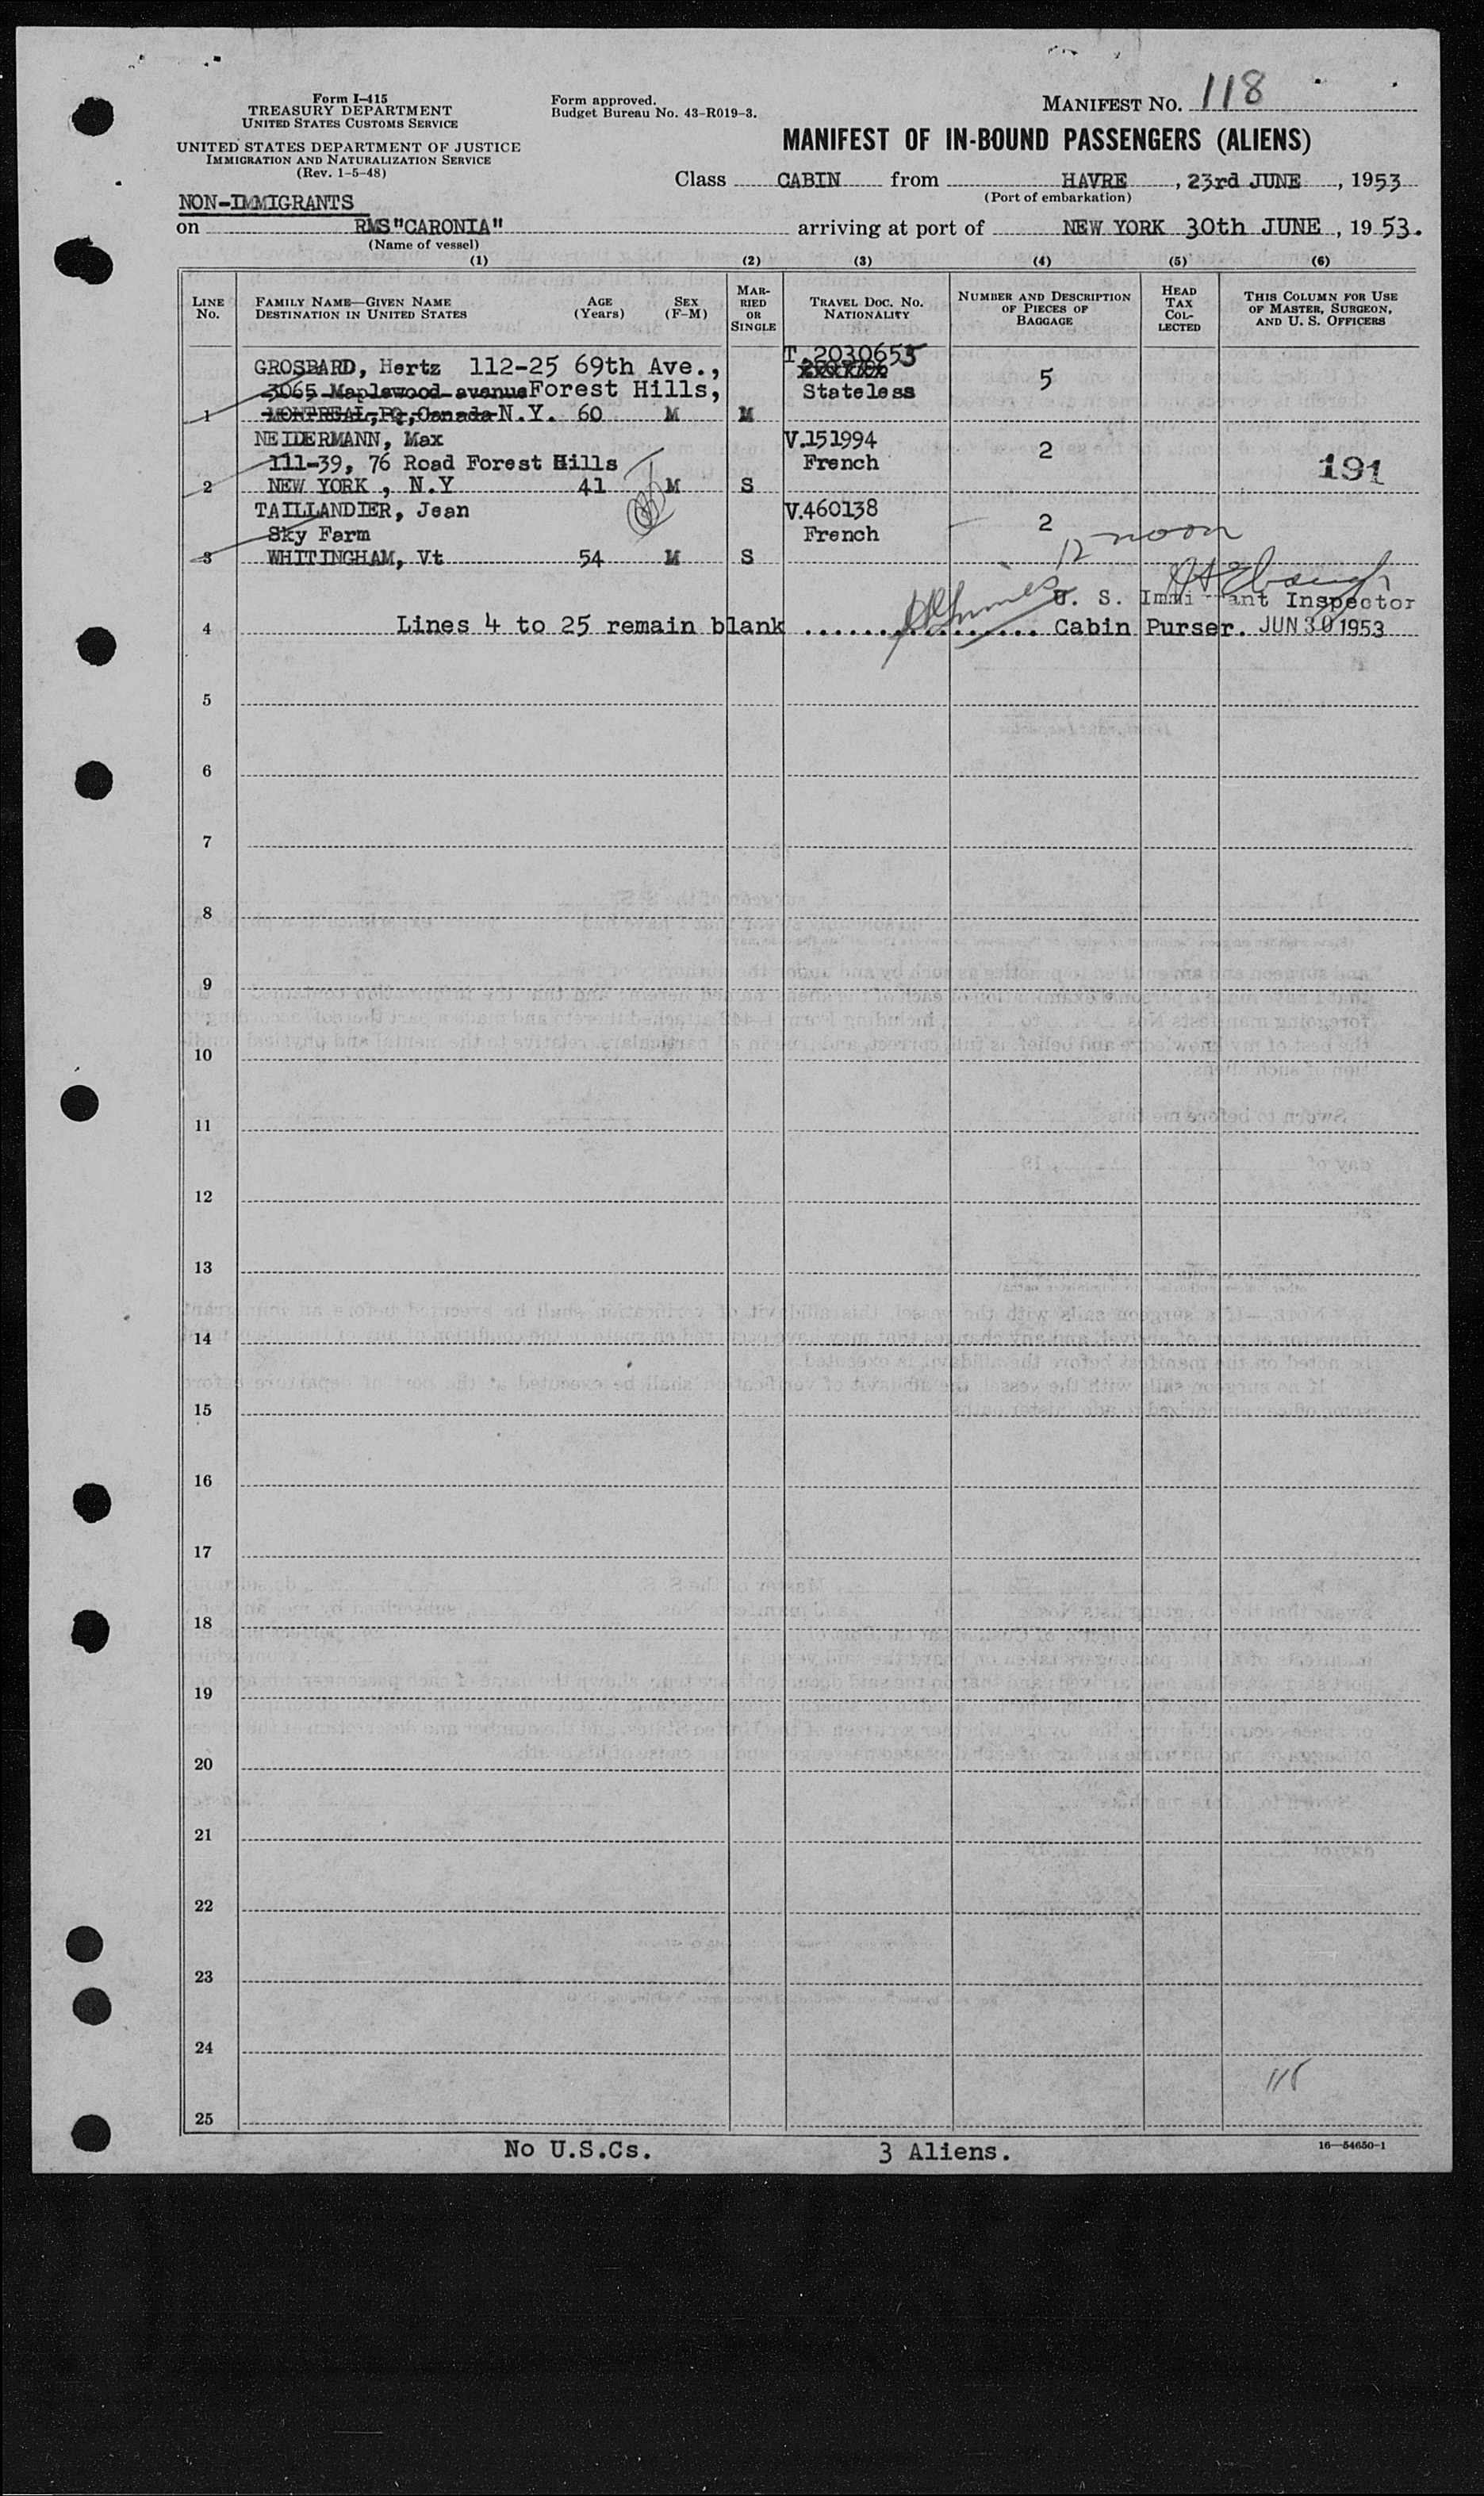 Form I-415
TREASURY DEPARTMENT
UNITED STATES CUSTOMS SERVICE
UNITED STATES DEPARTMENT OF JUSTICE
IMMIGRATION AND NATURALIZATION SERVICE
(Rev. 1-5-48)
Form approved.
Budget Bureau No. 43-R019-3.
MANIFEST NO. 118
MANIFEST OF IN-BOUND PASSENGERS (ALIENS)
Class CABIN from HAVRE, 23rd JUNE, 1953
(Port of embarkation)
NON-IMMIGRANTS
on RMS"CARONIA" arriving at port of NEW YORK 30th JUNE, 1953.
(Name of vessel)
(1) (2) (3) (4) (5) (6)
LINE NO.
FAMILY NAME—GIVEN NAME
DESTINATION IN UNITED STATES
AGE (Years)
SEX (F-M)
MARRIED OR SINGLE
TRAVEL DOC. NO. NATIONALITY
NUMBER AND DESCRIPTION OF PIECES OF BAGGAGE
HEAD TAX COLLECTED
THIS COLUMN FOR USE OF MASTER, SURGEON, AND U. S. OFFICERS
GROSBARD, Hertz 112-25 69th Ave., T.2030655
3065 Maplewood avenue Forest Hills, Stateless 5
1 MONTREAL, PQ, Canada N.Y. 60 M M
NEIDERMANN, Max V.151994
111-39, 76 Road Forest Hills French 2
2 NEW YORK , N.Y 41 M S 191
TAILLANDIER, Jean V.460138
Sky Farm French 2
3 WHITINGHAM, Vt 54 M S 12 noon
U. S. Immi ant Inspector
4 Lines 4 to 25 remain blank ................ Cabin Purser. JUN 30 1953
5
6
7
8
9
10
11
12
13
14
15
16
17
18
19
20
21
22
23
24
118
25
No U.S.Cs. 3 Aliens. 16—54650-1